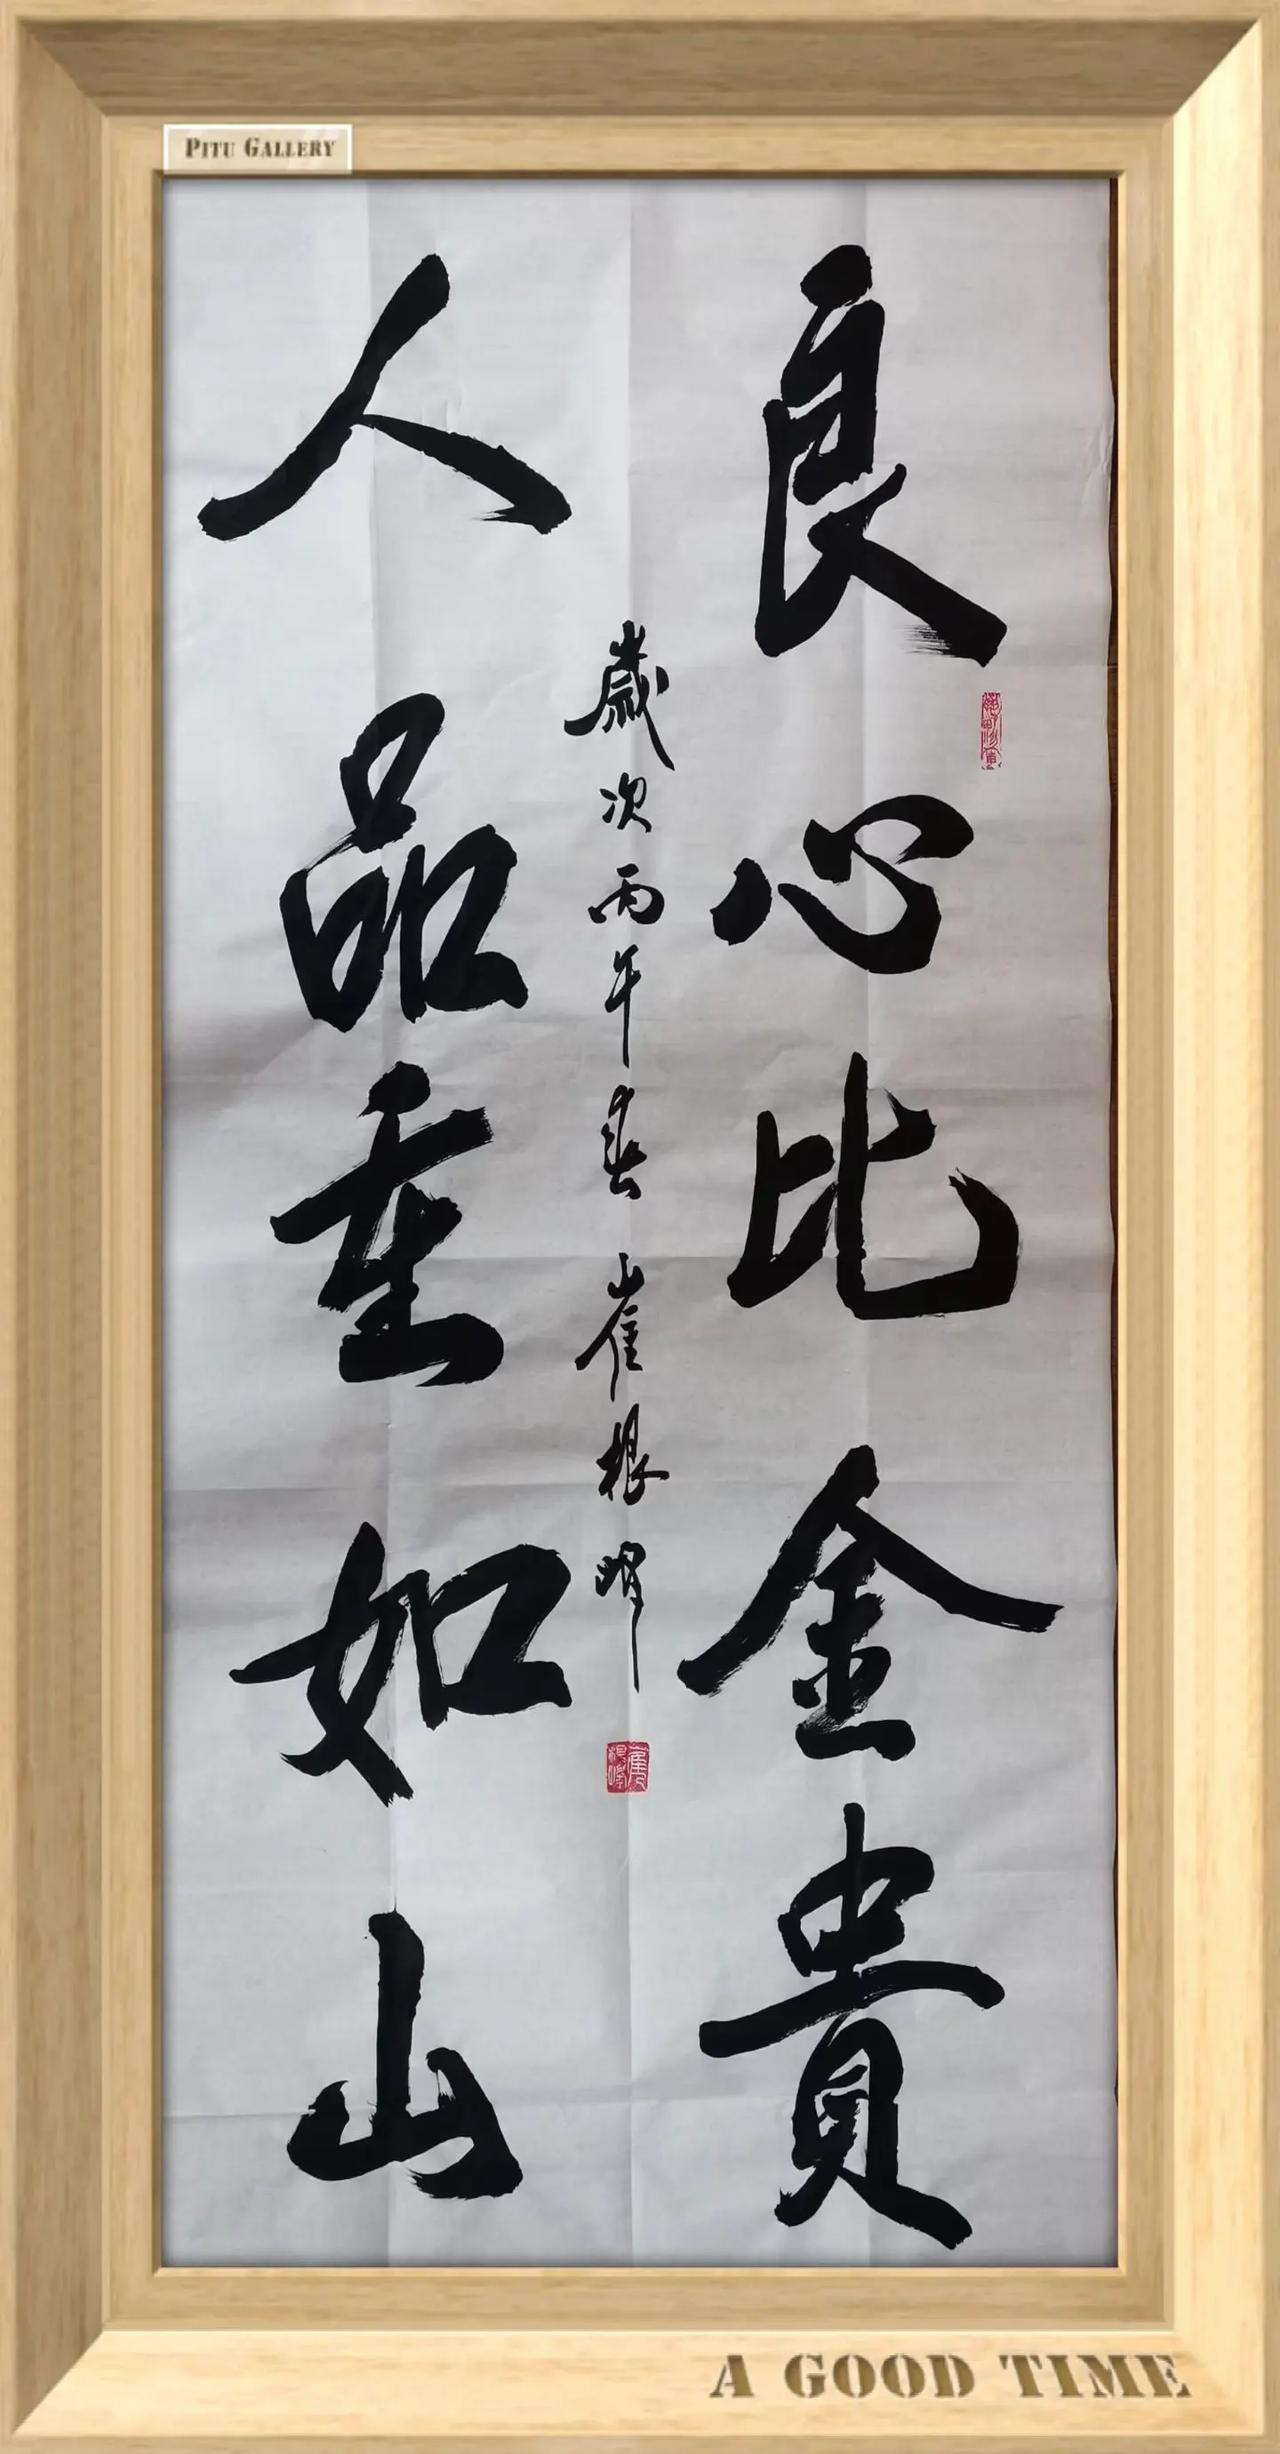 PITU GALLERY
良心比金贵
人品重如山
歳次丙午春 崔根明
A GOOD TIME